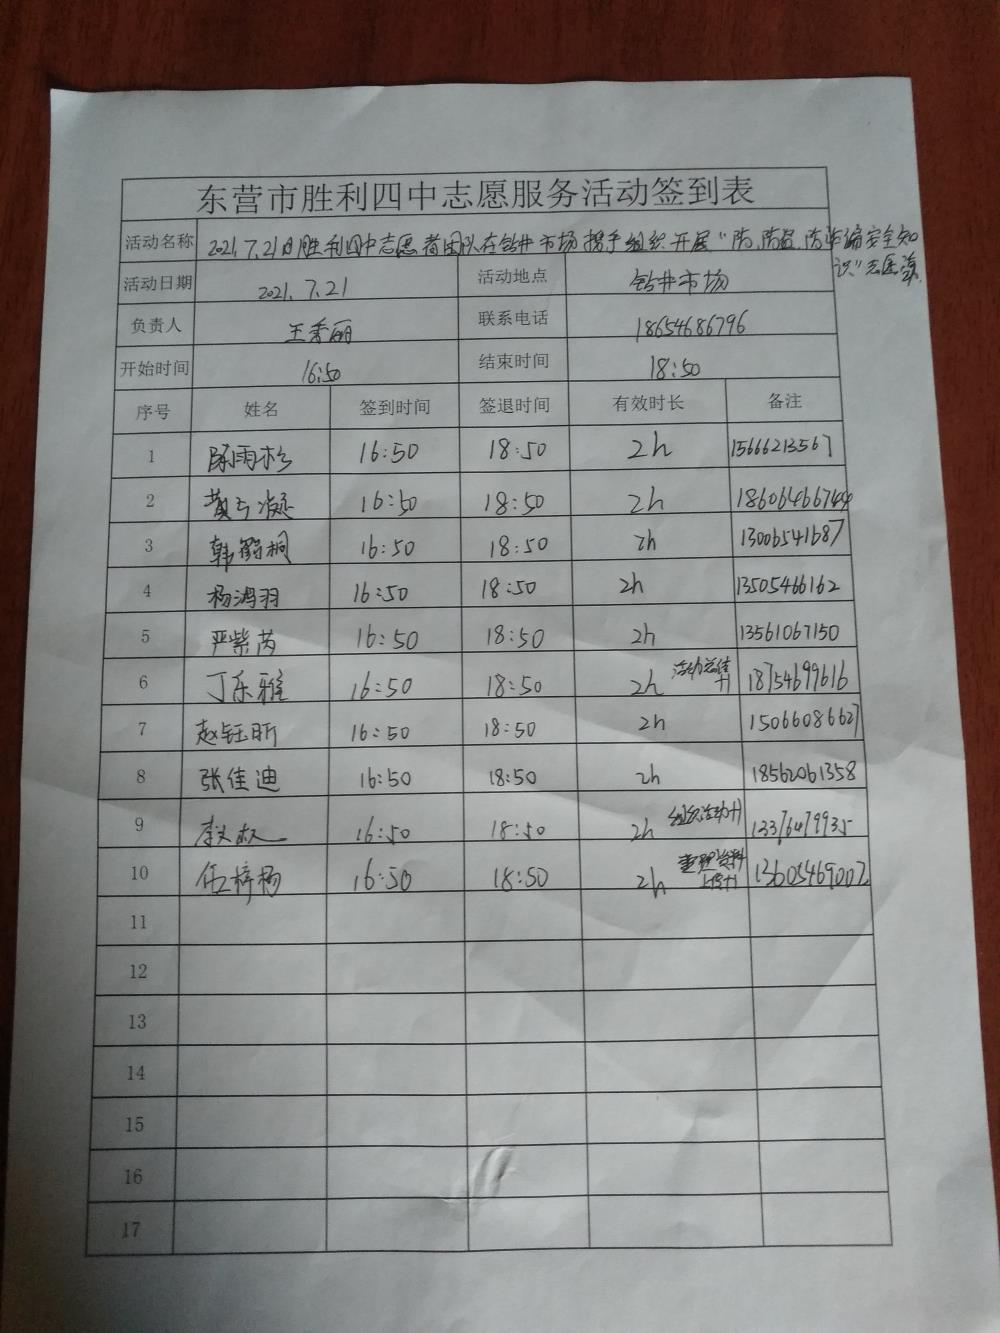 东营市胜利四中志愿服务活动签到表
活动名称 2021.7.21日胜利四中志愿者团队在钻井市场携手组织开展"防 防盗,防诈骗安全知
识"志愿
活动日期 2021.7.21 活动地点 钻井市场
负责人 王秀丽 联系电话 18654686796
开始时间 16:50 结束时间 18:50
序号 姓名 签到时间 签退时间 有效时长 备注
1 陈雨杉 16:50 18:50 2h 15666213567
2 黄 16:50 18:50 2h 18606466744
3 韩 桐 16:50 18:50 2h 13006541687
4 杨鸿羽 16:50 18:50 2h 13505466162
5 严紫芮 16:50 18:50 2h 13561067150
6 丁乐雅 16:50 18:50 2h 活动总结+1 18754699616
7 赵钰昕 16:50 18:50 2h 15066086627
8 张佳迪 16:50 18:50 2h 18562061358
9 李 16:50 18:50 2h 组织活动+1
10 任梓杨 16:50 18:50 2h 整理资料 上传+1 13605469002
11
12
13
14
15
16
17